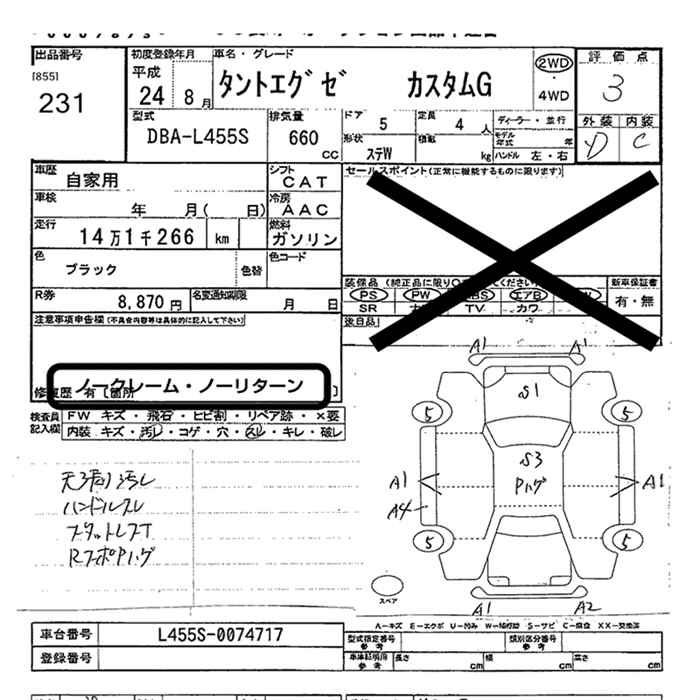 出品番号 初度登録年月 車名・グレード 2WD 評価点
[855] 平成 タントエグゼ カスタムG 3
231 24 8月 4WD 外装 内装
型式 排気量 ドア 5 定員 4人 ディーラー・並行 D C
DBA-L455S 660 CC 形状 ステW 積載 kg モデル年式 年 ハンドル 左・右
車歴 自家用 シフト CAT セールスポイント(正常に機能するものに限ります)
車検 年 月( 日) 冷房 AAC
走行 14万1千266 km 燃料 ガソリン
色 ブラック 色替 色コード
装備品 新車保証書
R券 8,870円 名変通知期限 月 日 PS PW エアB 有・無
SR TV カワ
注意事項申告欄(不具合内容等は具体的に記入して下さい) 後日品
修復歴 有 [箇所 ]
ノークレーム・ノーリターン
検査員記入欄 FW キズ・飛石・ヒビ割・リペア跡・×要
内装 キズ・汚れ・コゲ・穴・スレ・キレ・破レ
A1 A1
S1
5 5
S3
Pハゲ
A1 A1
A4
5 5
スペア
A1 A2
天張汚レ
ハンドルスレ
スタットレスT
RスポPハゲ
A=キズ E=エクボ U=凹み W=補修跡 S=サビ C=腐食 XX=交換済
車台番号 L455S-0074717 型式指定番号 参考 類別区分番号 参考
登録番号 車庫証明用 参考 長さ cm 幅 cm 高さ cm